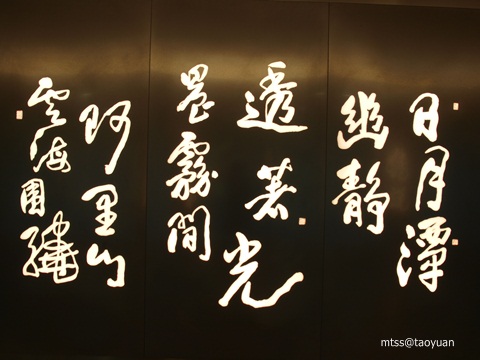 日月潭
幽靜
透着光
晨霧間
阿里山
雲海圍繞
mtss@taoyuan